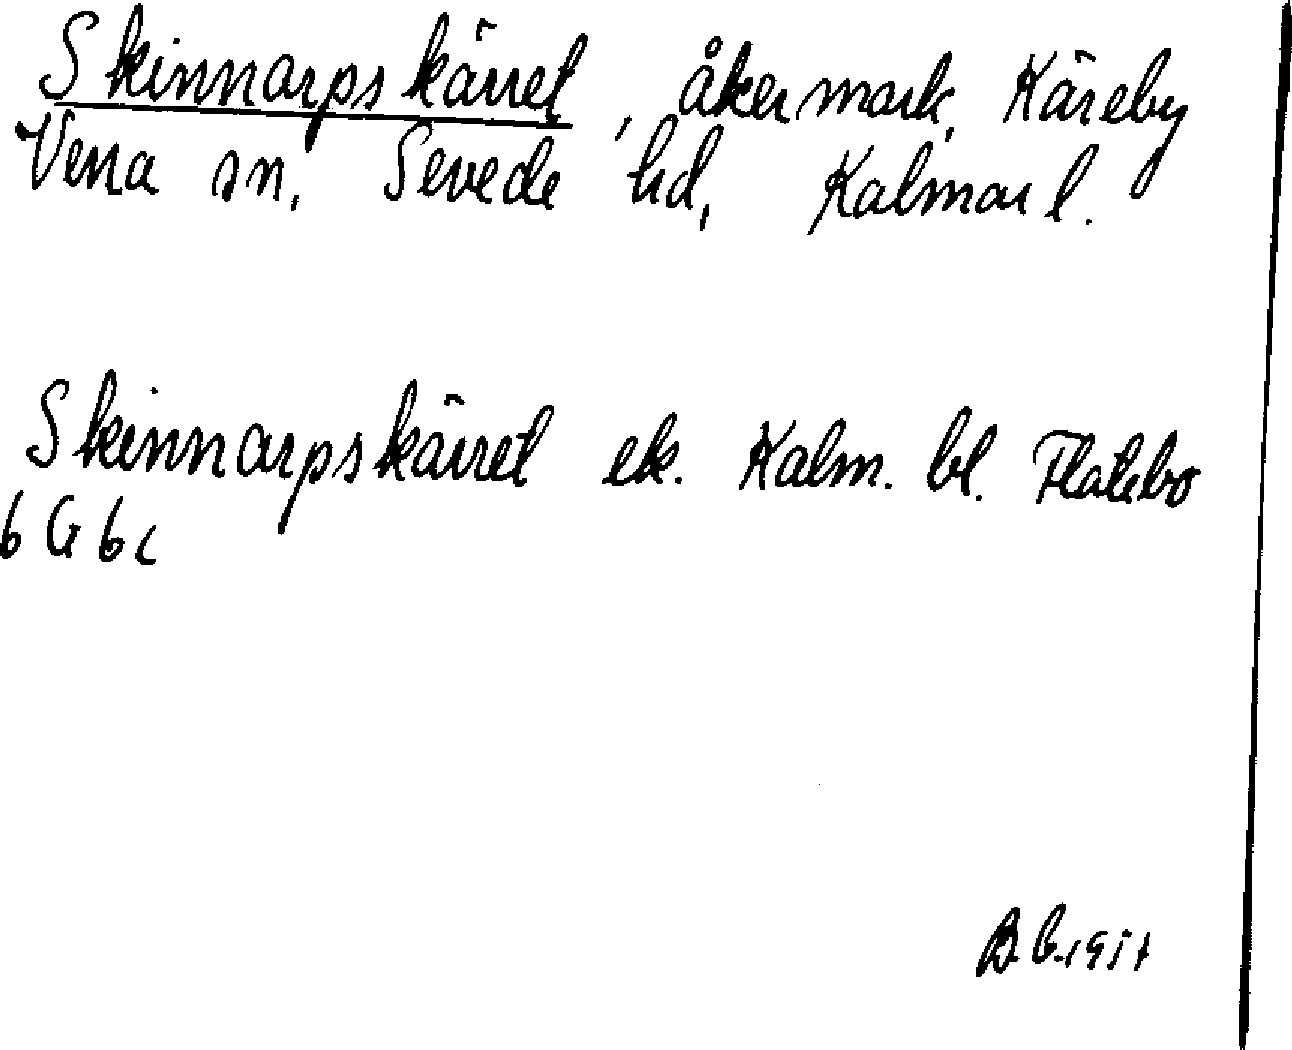 Skinnarpskärret, åkermark, Käreby
Vena sn, Sevede hd, Kalmar l.
Skinnarpskärret ek. Kalm. bl. Flatebo
6 G 6 c